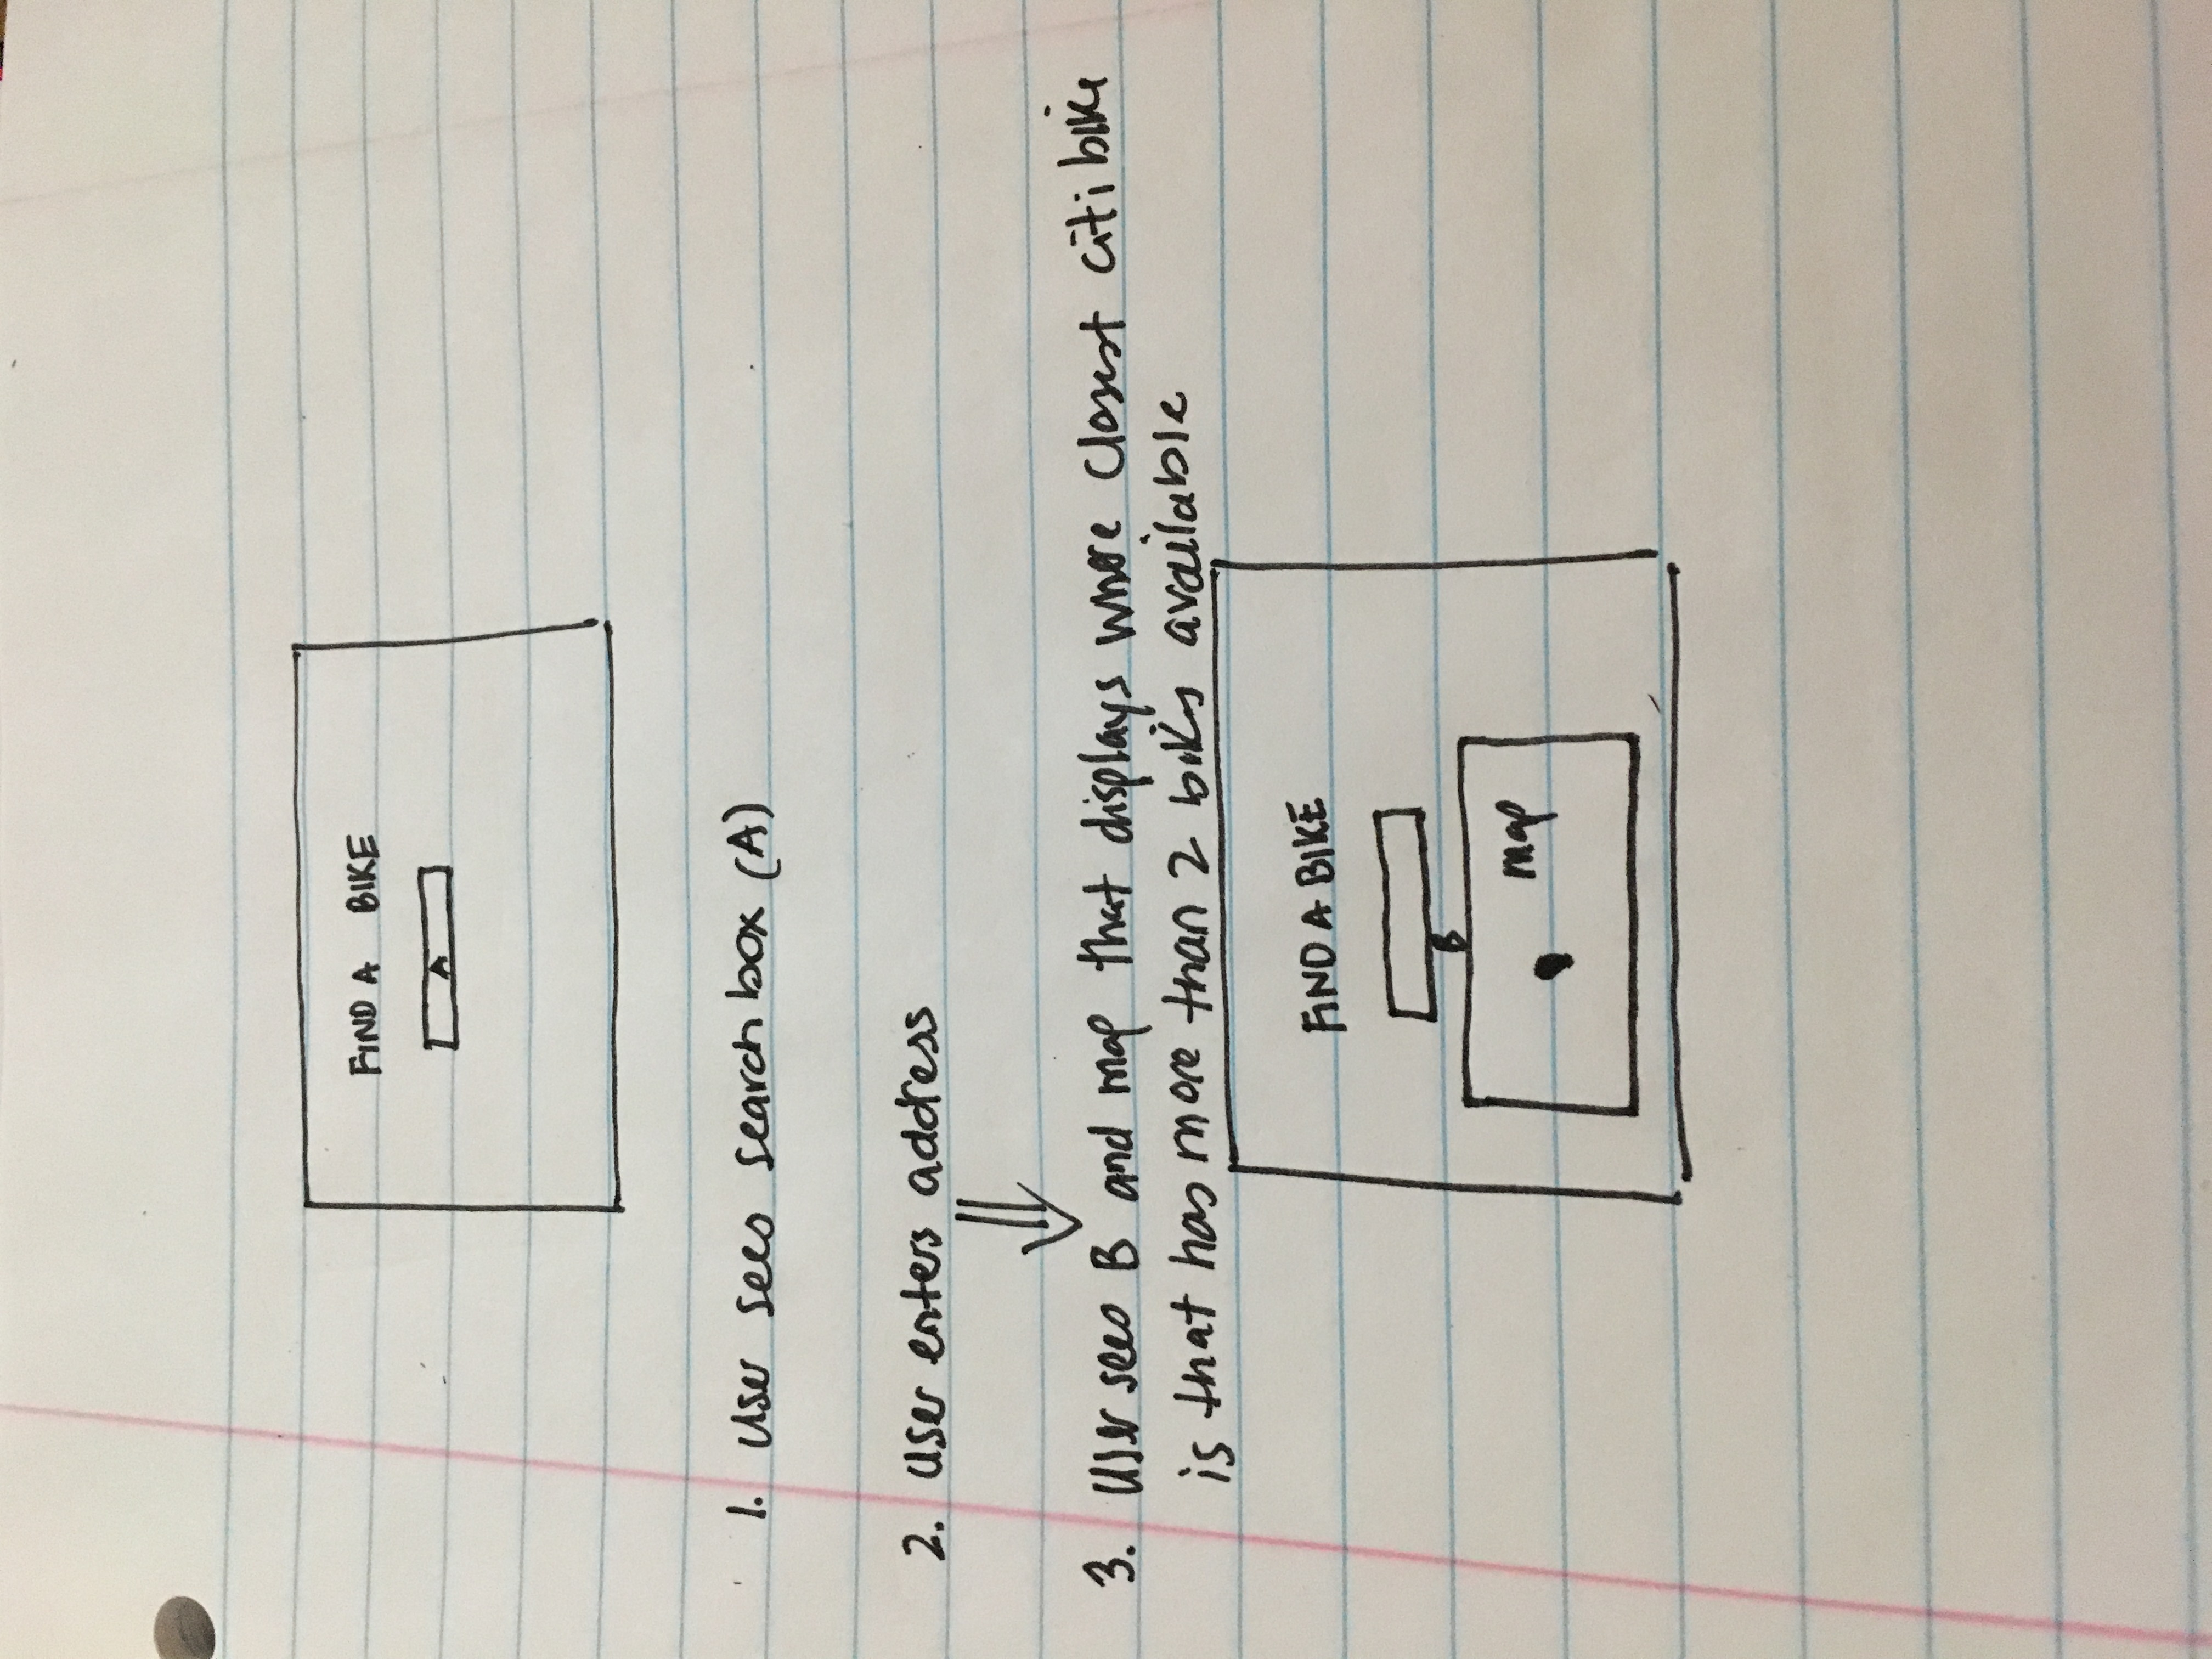 FIND A BIKE
A
1. User sees search box (A)
2. User enters address
3. User sees B and map that displays where closest citi bike
is that has more than 2 bikes available
FIND A BIKE
B
map